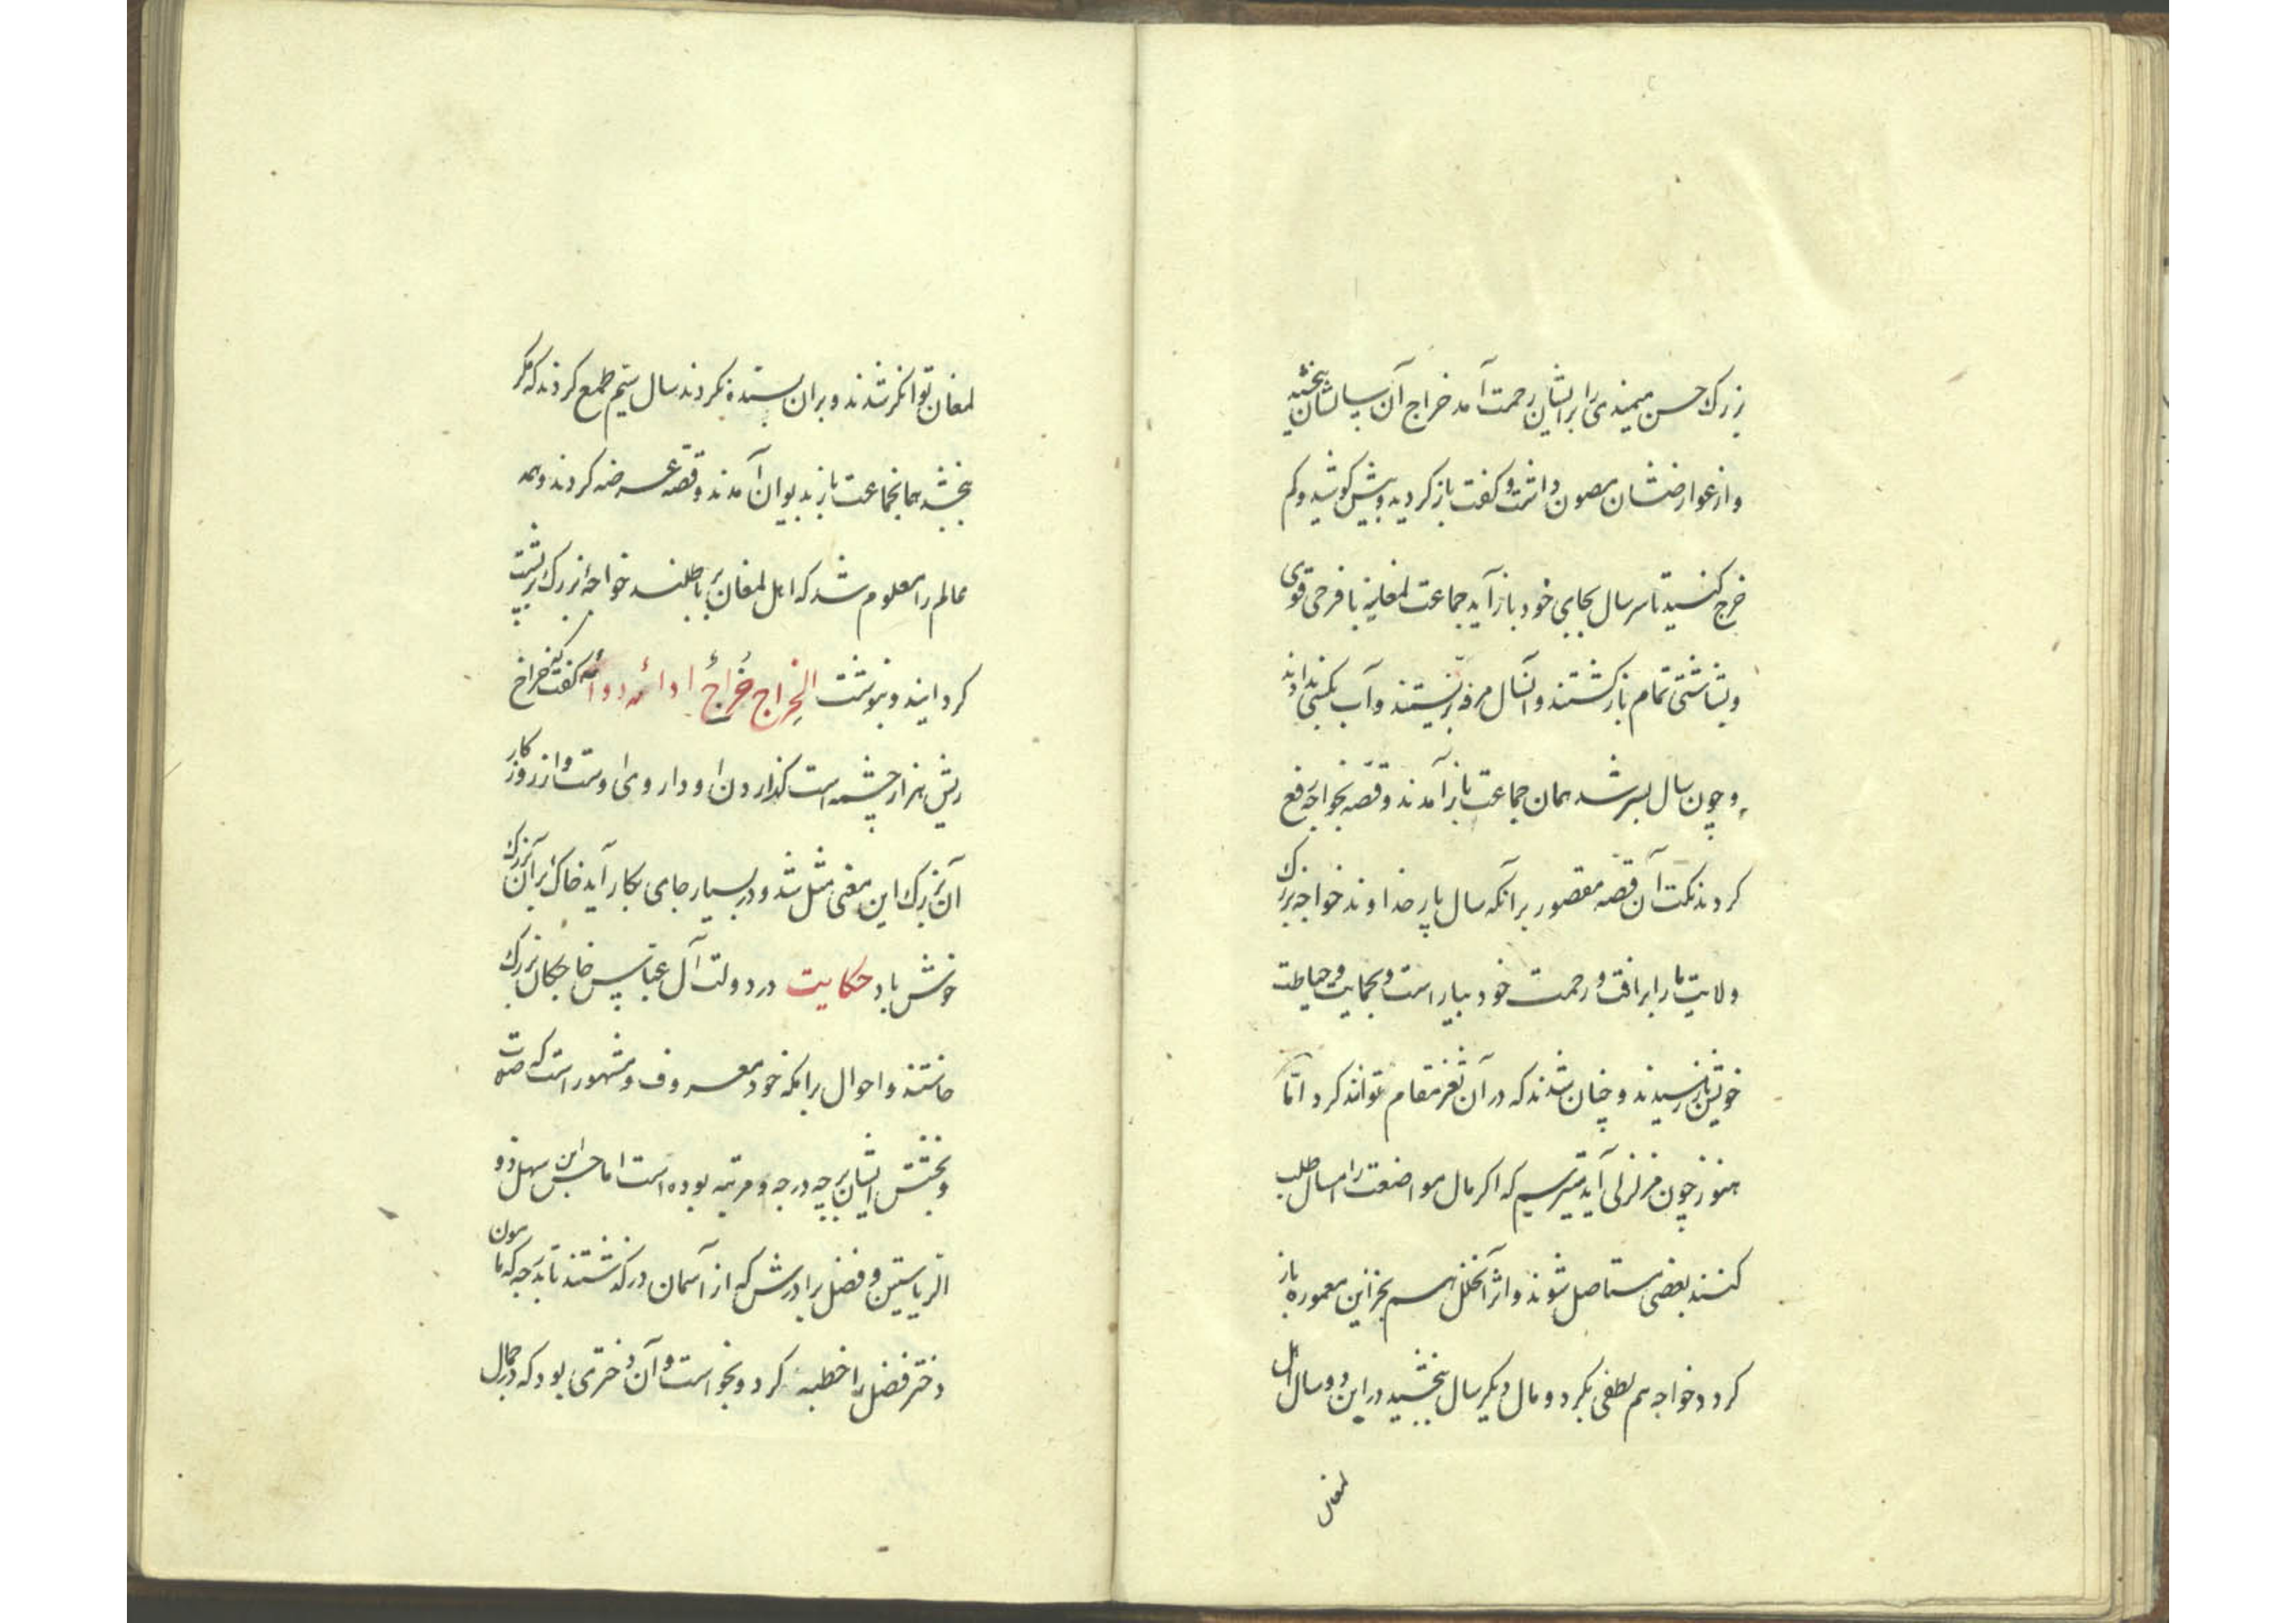 بزرک حسن میمندی را برایشان رحمت آمد خراج آن سالشان ببخشید
و از عوارضشان مصون داشت و کفت باز کردید و بیش کوشید و کم
خرج کنسید تا سر سال بجای خود باز آید جماعت لمغانیه با فرحی قوی
و بشاشتی تمام باز کشتند و آنسال مرفه بزیستند و آب بکسی ندادند
و چون سال بسر شد همان جماعت باز آمدند و قصه بخواجه رفع
کردند نکت آن قصه مقصور بر آنکه سال پار خداوند خواجه بزرک
ولایت ما را برافت و رحمت خود بیاراست و بحمایت و حیاطت
خویش باز رسیدند و چنان شدند که در آن ثغر مقام توانند کرد اما
هنوز چون مزلزلی آید میترسیم که اکر مال مواضعت را امسال طلب
کنند بعضی مستاصل شوند و اثر آن خلل هم بخزاین معموره باز
کردد خواجه هم لطفی بکرد و مال دیکر سال ببخشید در این دو سال اهل
لمغان
لمغان توانکر شدند و بر آن بسنده نکردند سال سیم طمع کردند که مکر
ببخشد همان جماعت باز بدیوان آمدند و قصه عرضه کردند و همه
عالم را معلوم شد که اهل لمغان بر باطلند خواجه بزرک بر پشت
کردانید و بنوشت الخراج خراج اداؤه دواؤه کفت خراج
ریش هزار چشمه است کذاردن او داروی اوست و از روزکار
آن بزرک این معنی مثل شد و در بسیار جای بکار آید خاک بر آن بزرک
خوش باد حکایت در دولت آل عباس خواجکان بزرک
خاستند و احوال برامکه خود معروف و مشهور است که صلت
و بخشش ایشان بر چه درجه و مرتبه بوده است اما حسن ابن سهل ذو
الریاستین و فضل برادرش که از آسمان در کذشتند تا بدرجه که مامون
دختر فضل را خطبه کرد و بخواست و آن دختری بود که در جمال